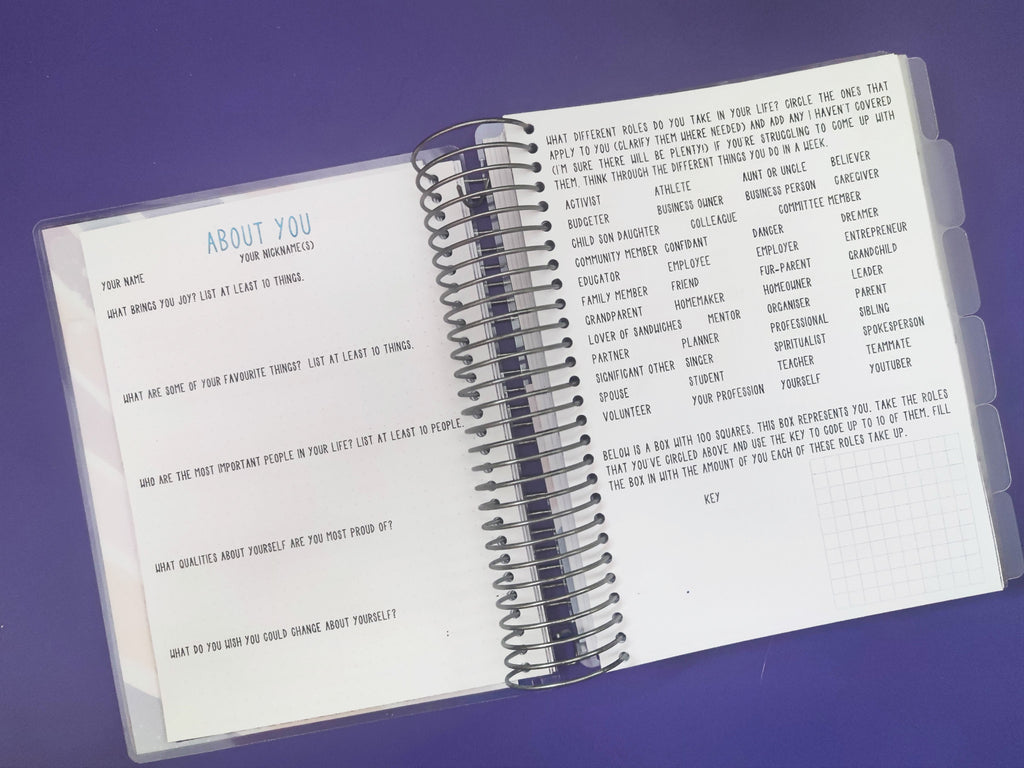 ABOUT YOU
YOUR NAME YOUR NICKNAME(S)
WHAT BRINGS YOU JOY? LIST AT LEAST 10 THINGS.
WHAT ARE SOME OF YOUR FAVOURITE THINGS? LIST AT LEAST 10 THINGS.
WHO ARE THE MOST IMPORTANT PEOPLE IN YOUR LIFE? LIST AT LEAST 10 PEOPLE.
WHAT QUALITIES ABOUT YOURSELF ARE YOU MOST PROUD OF?
WHAT DO YOU WISH YOU COULD CHANGE ABOUT YOURSELF?
WHAT DIFFERENT ROLES DO YOU TAKE IN YOUR LIFE? CIRCLE THE ONES THAT
APPLY TO YOU (CLARIFY THEM WHERE NEEDED) AND ADD ANY I HAVEN'T COVERED
(I'M SURE THERE WILL BE PLENTY!) IF YOU'RE STRUGGLING TO COME UP WITH
THEM, THINK THROUGH THE DIFFERENT THINGS YOU DO IN A WEEK.
ACTIVIST ATHLETE AUNT OR UNCLE BELIEVER
BUDGETER BUSINESS OWNER BUSINESS PERSON CAREGIVER
CHILD SON DAUGHTER COLLEAGUE COMMITTEE MEMBER
COMMUNITY MEMBER CONFIDANT DANCER DREAMER
EDUCATOR EMPLOYEE EMPLOYER ENTREPRENEUR
FAMILY MEMBER FRIEND FUR-PARENT GRANDCHILD
GRANDPARENT HOMEMAKER HOMEOWNER LEADER
LOVER OF SANDWICHES MENTOR ORGANISER PARENT
PARTNER PLANNER PROFESSIONAL SIBLING
SIGNIFICANT OTHER SINGER SPIRITUALIST SPOKESPERSON
SPOUSE STUDENT TEACHER TEAMMATE
VOLUNTEER YOUR PROFESSION YOURSELF YOUTUBER
BELOW IS A BOX WITH 100 SQUARES. THIS BOX REPRESENTS YOU. TAKE THE ROLES
THAT YOU'VE CIRCLED ABOVE AND USE THE KEY TO CODE UP TO 10 OF THEM. FILL
THE BOX IN WITH THE AMOUNT OF YOU EACH OF THESE ROLES TAKE UP.
KEY